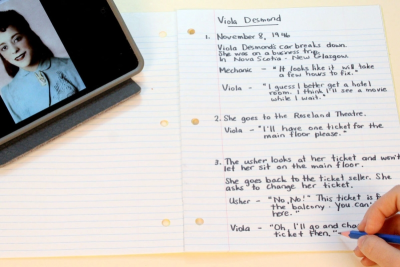 Viola Desmond
1. November 8, 1946
Viola Desmond's car breaks down.
She was on a business trip.
In Nova Scotia - New Glasgow
Mechanic - "It looks like it will take
a few hours to fix."
Viola - "I guess I better get a hotel
room. I think I'll see a movie
while I wait."
2. She goes to the Roseland Theatre.
Viola - "I'll have one ticket for the
main floor please."
3. The usher looks at her ticket and won't
let her sit on the main floor.
She goes back to the ticket seller. She
asks to change her ticket.
Usher - "No, No! This ticket is f
the balcony. You can'
here."
Viola - "Oh, I'll go and cha
ticket then."